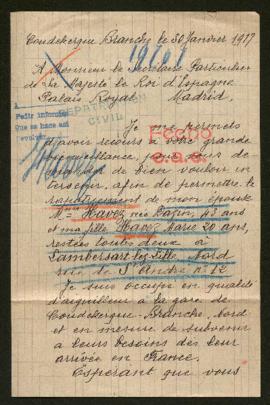 Coudekerque Branche, le 30 Janvier 1917
A Monsieur le Secrétaire Particulier
de Sa Majesté le Roi d'Espagne
Palais Royal Madrid.
REPATRIACION
CIVIL
Pedir informes
Que se hace así
Je me permets
d'avoir recours à votre grande
bienveillance, pour
de bien vouloir
afin de permettre le
rapatriement de mon épouse
Mme Havez née 43 ans
et ma fille Havez Marie 20 ans,
restées toutes deux à
Lambersart lez Lille, Nord
rue de St André no 12
Je suis occupé en qualité
d'aiguilleur à la gare de
Coudekerque-Branche, Nord
et en mesure de subvenir
à leurs besoins dès leur
arrivée en France.
Espérant que vous